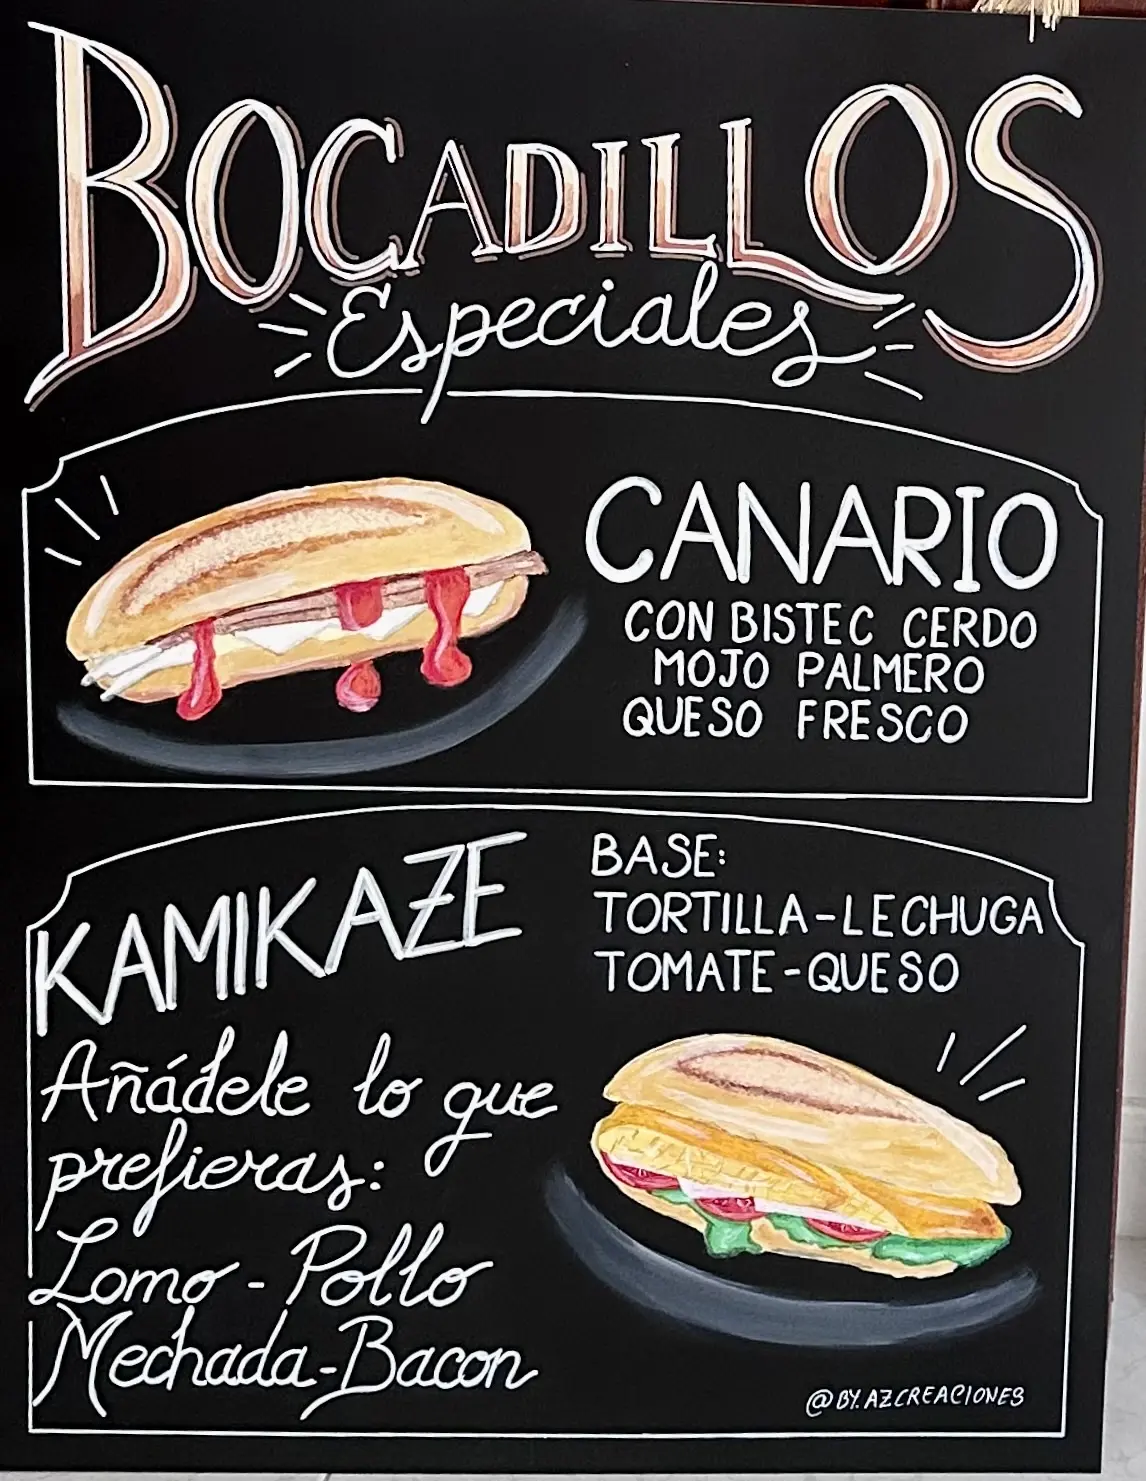 BOCADILLOS
Especiales
CANARIO
CON BISTEC CERDO
MOJO PALMERO
QUESO FRESCO
KAMIKAZE
BASE:
TORTILLA-LECHUGA
TOMATE-QUESO
Añádele lo que
prefieras:
Lomo - Pollo
Mechada-Bacon
@BY.AZCREACIONES